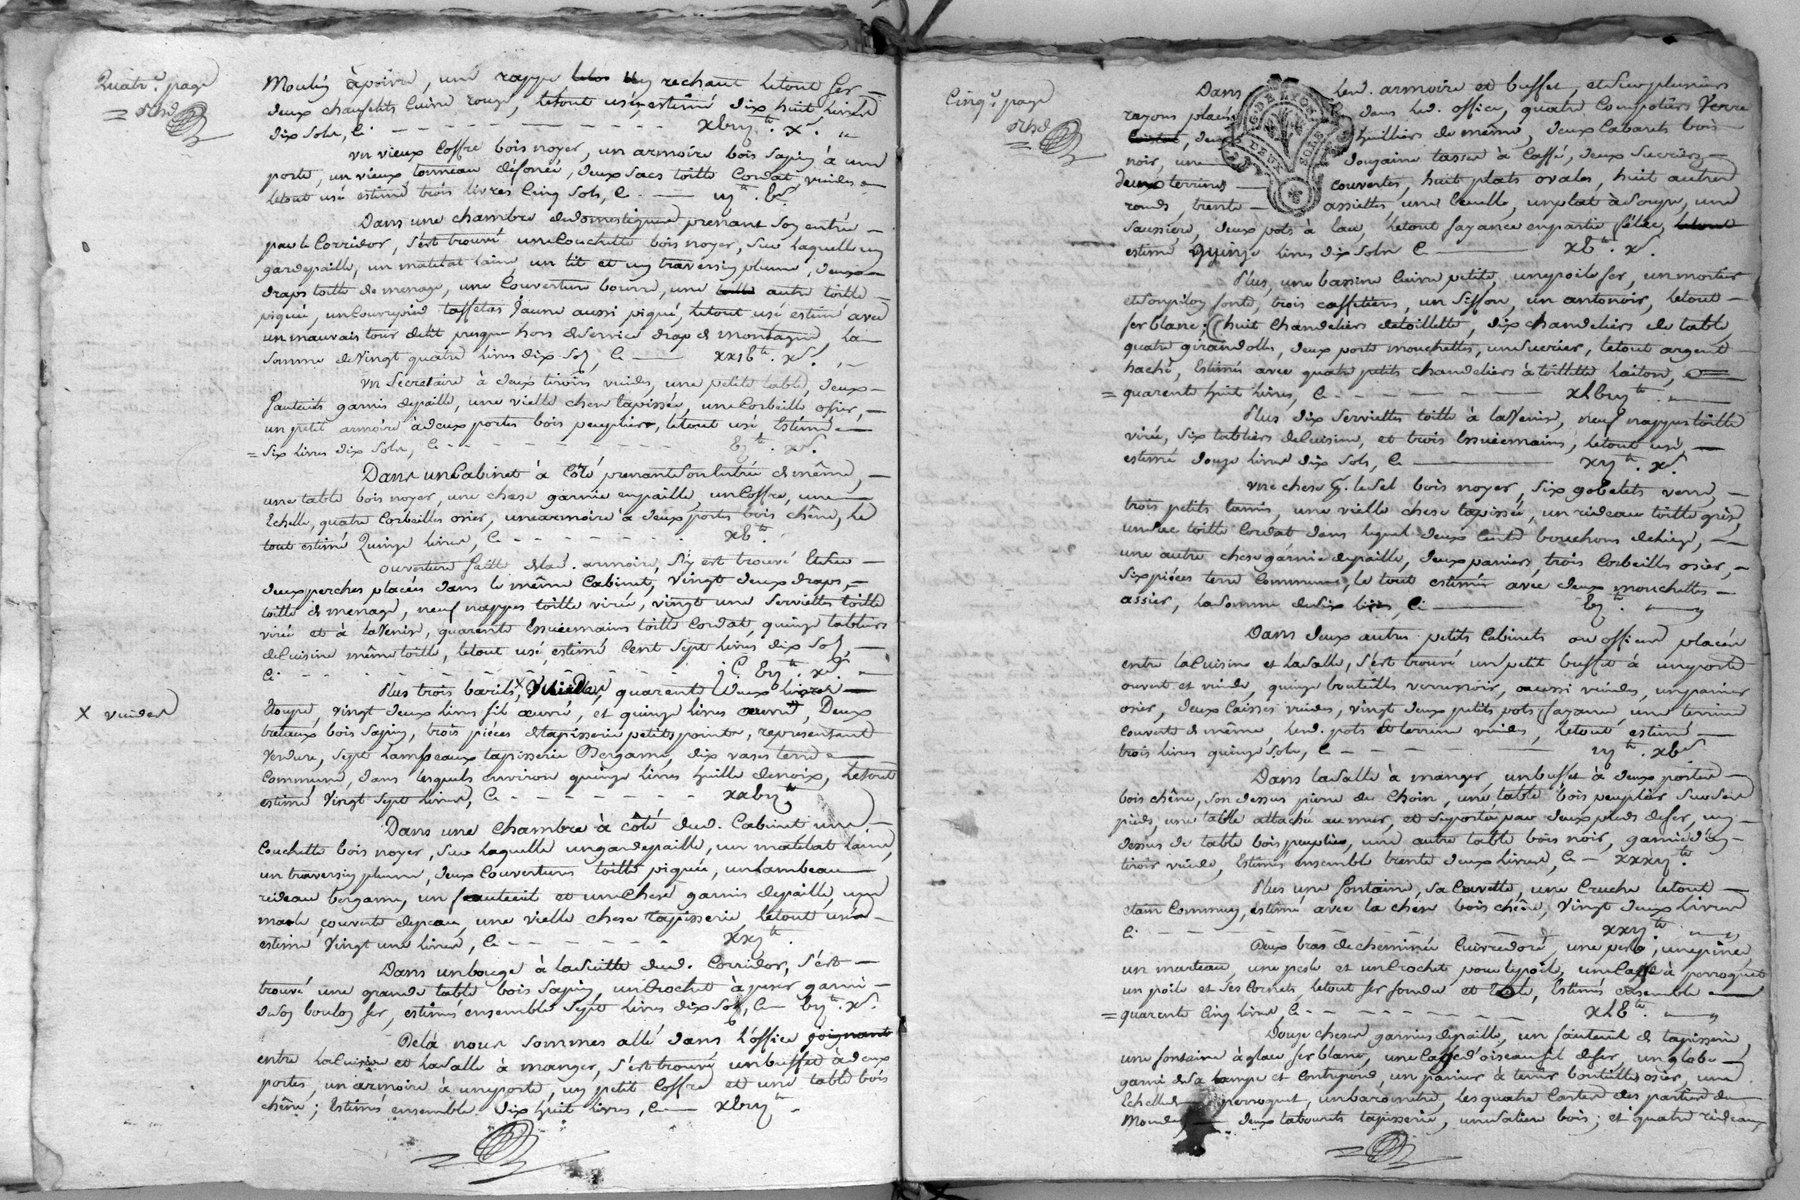 Quatr.e page
Moulin à poivre, une rappe un rechaut letout fer
deux chauffelits cuivre rouge, letout usé, estimé dix huit livres
dix sols, Ci - - - xbiij.tt x.s
un vieux Coffre bois noyer, un armoire bois sapin à une
porte, un vieux tonneau défoncé, deux sacs toille Cordat vuides
letout usé estimé trois livres Cinq sols, C iij.tt b.s
Dans une chambre de domestique prenant son entrée
par le Corridor, s'est trouvé une Couchette bois noyer, sur laquelle un
gardepaille, un matelat laine un lit et un traversin plume, deux
draps toille de menage, une Couverture bourre, une autre toille
piquée, un Couvrepied taffetas jaune aussi piqué, letout usé estimé avec
un mauvais tour de lit presque hors de service drap de montagne, la
somme de Vingt quatre livres dix sols, Ci xxiiij.tt x.s
un Secretaire à deux tiroirs vuides, une petite table, deux
fauteuils garnis depaille, une vielle chese tapissée, une Corbeille osier,
un petit armoire à deux portes bois peuplier, letout usé, Estimé
six livres dix sols, Ci - - - bj.tt x.s
Dans un Cabinet à Côté prenant son Entrée de même,
une table bois noyer, une chese garnie en paille, un Coffre, une
Echelle, quatre Corbeilles osier, une armoire à deux portes bois chêne, le
tout estimé Quinze livres, Ci - - - xb.tt
ouverture faitte de lad. armoire, s'y est trouvé
deux perches placées dans le même Cabinet, Vingt deux draps,
toille de menage, neuf nappes toille virée, vingt une serviettes toille
virée et à la Venise, quarente Essuiemains toille Cordat, quinze tabliers
de Cuisine même toille, letout usé, estimé Cent sept livres dix sols,
Ci - - - C. bij.tt x.s
Plus trois barils, X quarente deux livres
X vuides
étoupe, vingt deux livres fil œuvré, et quinze livres œuvré, Deux
treteaux bois sapin, trois pièces de tapisserie petits points, representant
Verdure, sept lambeaux tapisserie Bergame, dix vases terre
Commune, dans lesquels Environ quinze livres huille de noix, letout
estimé Vingt sept livres, Ci - - - xxbij.tt
Dans une Chambre à côté dud. Cabinet une
Couchette bois noyer, sur laquelle un gardepaille, un matelat laine,
un traversin plume, deux Couvertures toille piquée, un lambeau
rideau bergame, un fauteuil et une Chese garnis depaille, une
male, couverte de peau, une vielle chese tapisserie, letout usé
estimé Vingt une livres, Ci - - - xxj.tt
Dans un bouge à la suitte dud. Corridor, s'est
trouvé une grande table bois sapin, un Crochet à peser garni
de son boulon fer, estimés ensemble sept livres dix sols, Ci bij.tt x.s
Delà nous sommes allé dans l'office joignant
entre la Cuisine et la salle à manger, s'est trouvé un buffet à deux
portes, un armoire à une porte, un petit Coffre et une table bois
chêne; Estimés ensemble dix huit livres, Ci xbiij.tt
Cinq.e page
Dans led. armoire et buffet, et sur plusieurs
rayons placés dans led. office, quatre Compotiers Verre
deux huilliers de même, deux Cabarets bois
noir, une douzaine tasses à Caffé, deux sucriers
deux terrines couvertes, huit plats ovales, huit autres
ronds, trente assiettes une Ecuelle, un plat à soupe, une
saussière, deux pots à l'au, letout fayance en partie fêlée, letout
estimé Quinze livres dix sols C xb.tt x.s
Plus, une bassine Cuivre petite, un poile fer, un mortier
et son pilon fonte, trois caffetiers, un siffon, un antonoir, letout
fer blanc; huit chandeliers de toillette, dix chandeliers de table
quatre girandolles, deux porte mouchettes, un sucrier, letout argent
haché, Estimés avec quatre petits chandeliers à toillette laiton,
quarente huit livres, C - - - xlbiij.tt
Plus dix serviettes toille à la Venise, neuf nappes toille
virée, six tabliers de Cuisine, et trois Essuiemains, letout usé,
estimé douze livres dix sols, Ci xij.tt x.s
une chese p. le sel bois noyer, six gobelets verre,
trois petits tamis, une vielle chese tapissée, un rideau toille grise,
un sac toille Cordat dans lequel deux Cents bouchons de liege,
une autre chese garnie depaille, deux paniers, trois Corbeilles osier,
six pièces terre Commune, le tout estimé avec deux mouchettes
assier, la somme de six livres, Ci bj.tt
Dans deux autres petits Cabinets ou offices placés
entre la Cuisine et la salle, s'est trouvé un petit buffet à une porte
ouvert et vuide, quinze bouteilles verre noir, aussi vuides, un panier
osier, deux Caisses vuides, vingt deux petits pots fayance, une terrine
couverte de même, lesd. pots et terrine vuides, letout estimé
trois livres quinze sols, C - - - iij.tt xb.s
Dans la salle à manger, un buffet à deux portes
bois chêne, son dessus pierre de Choin, une table bois peuplier sur ses
pieds, une table attaché au mur, et suportée par deux pieds de fer, un
dessus de table bois peuplier, une autre table bois noir, garnie d'un
tiroir vuide, Estimés ensemble trente deux livres, Ci xxxij.tt
Plus une fontaine, sa Cuvette, une Cruche letout
étain Commun, estimé avec la chese bois chêne, Vingt deux livres
Ci - - - xxij.tt
Deux bras de cheminée Cuivre doré, une pelle, une pince,
un marteau, une pesle et un Crochet pour le poile, une Cage à perroquet
un poile et ses Cornets letout fer fondu et tole, Estimés ensemble
quarente Cinq livres, C - - - xlb.tt
Douze cheses garnies depaille, un fauteuil de tapisserie,
une fontaine à glace fer blanc, une Cage d'oiseau fil de fer, un globe
garni de sa lampe et Contrepoid, un panier à tenir bouteilles osier, une
Echelle perroquet, un barometre, les quatre Cartes des parties du
Monde, deux tabourets tapisserie, une saliere bois; et quatre rideaux